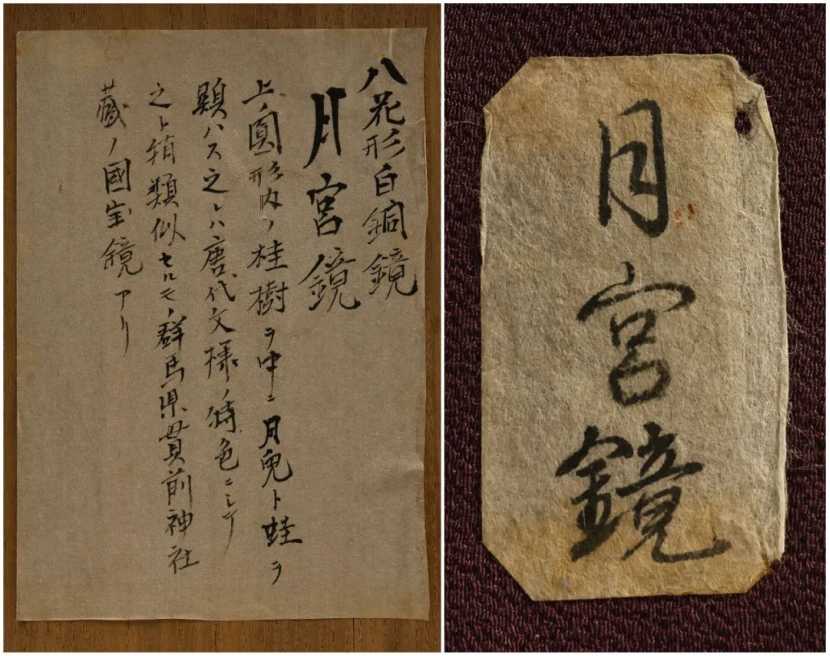 八花形白銅鏡
月宮鏡
上ノ圓形内ノ桂樹ヲ中ニ月兎ト蛙ヲ
顕ハス之レハ唐代文様ノ特色ニシテ
之ト稍類似セルモノ群馬県貫前神社
蔵ノ國宝鏡アリ
月宮鏡